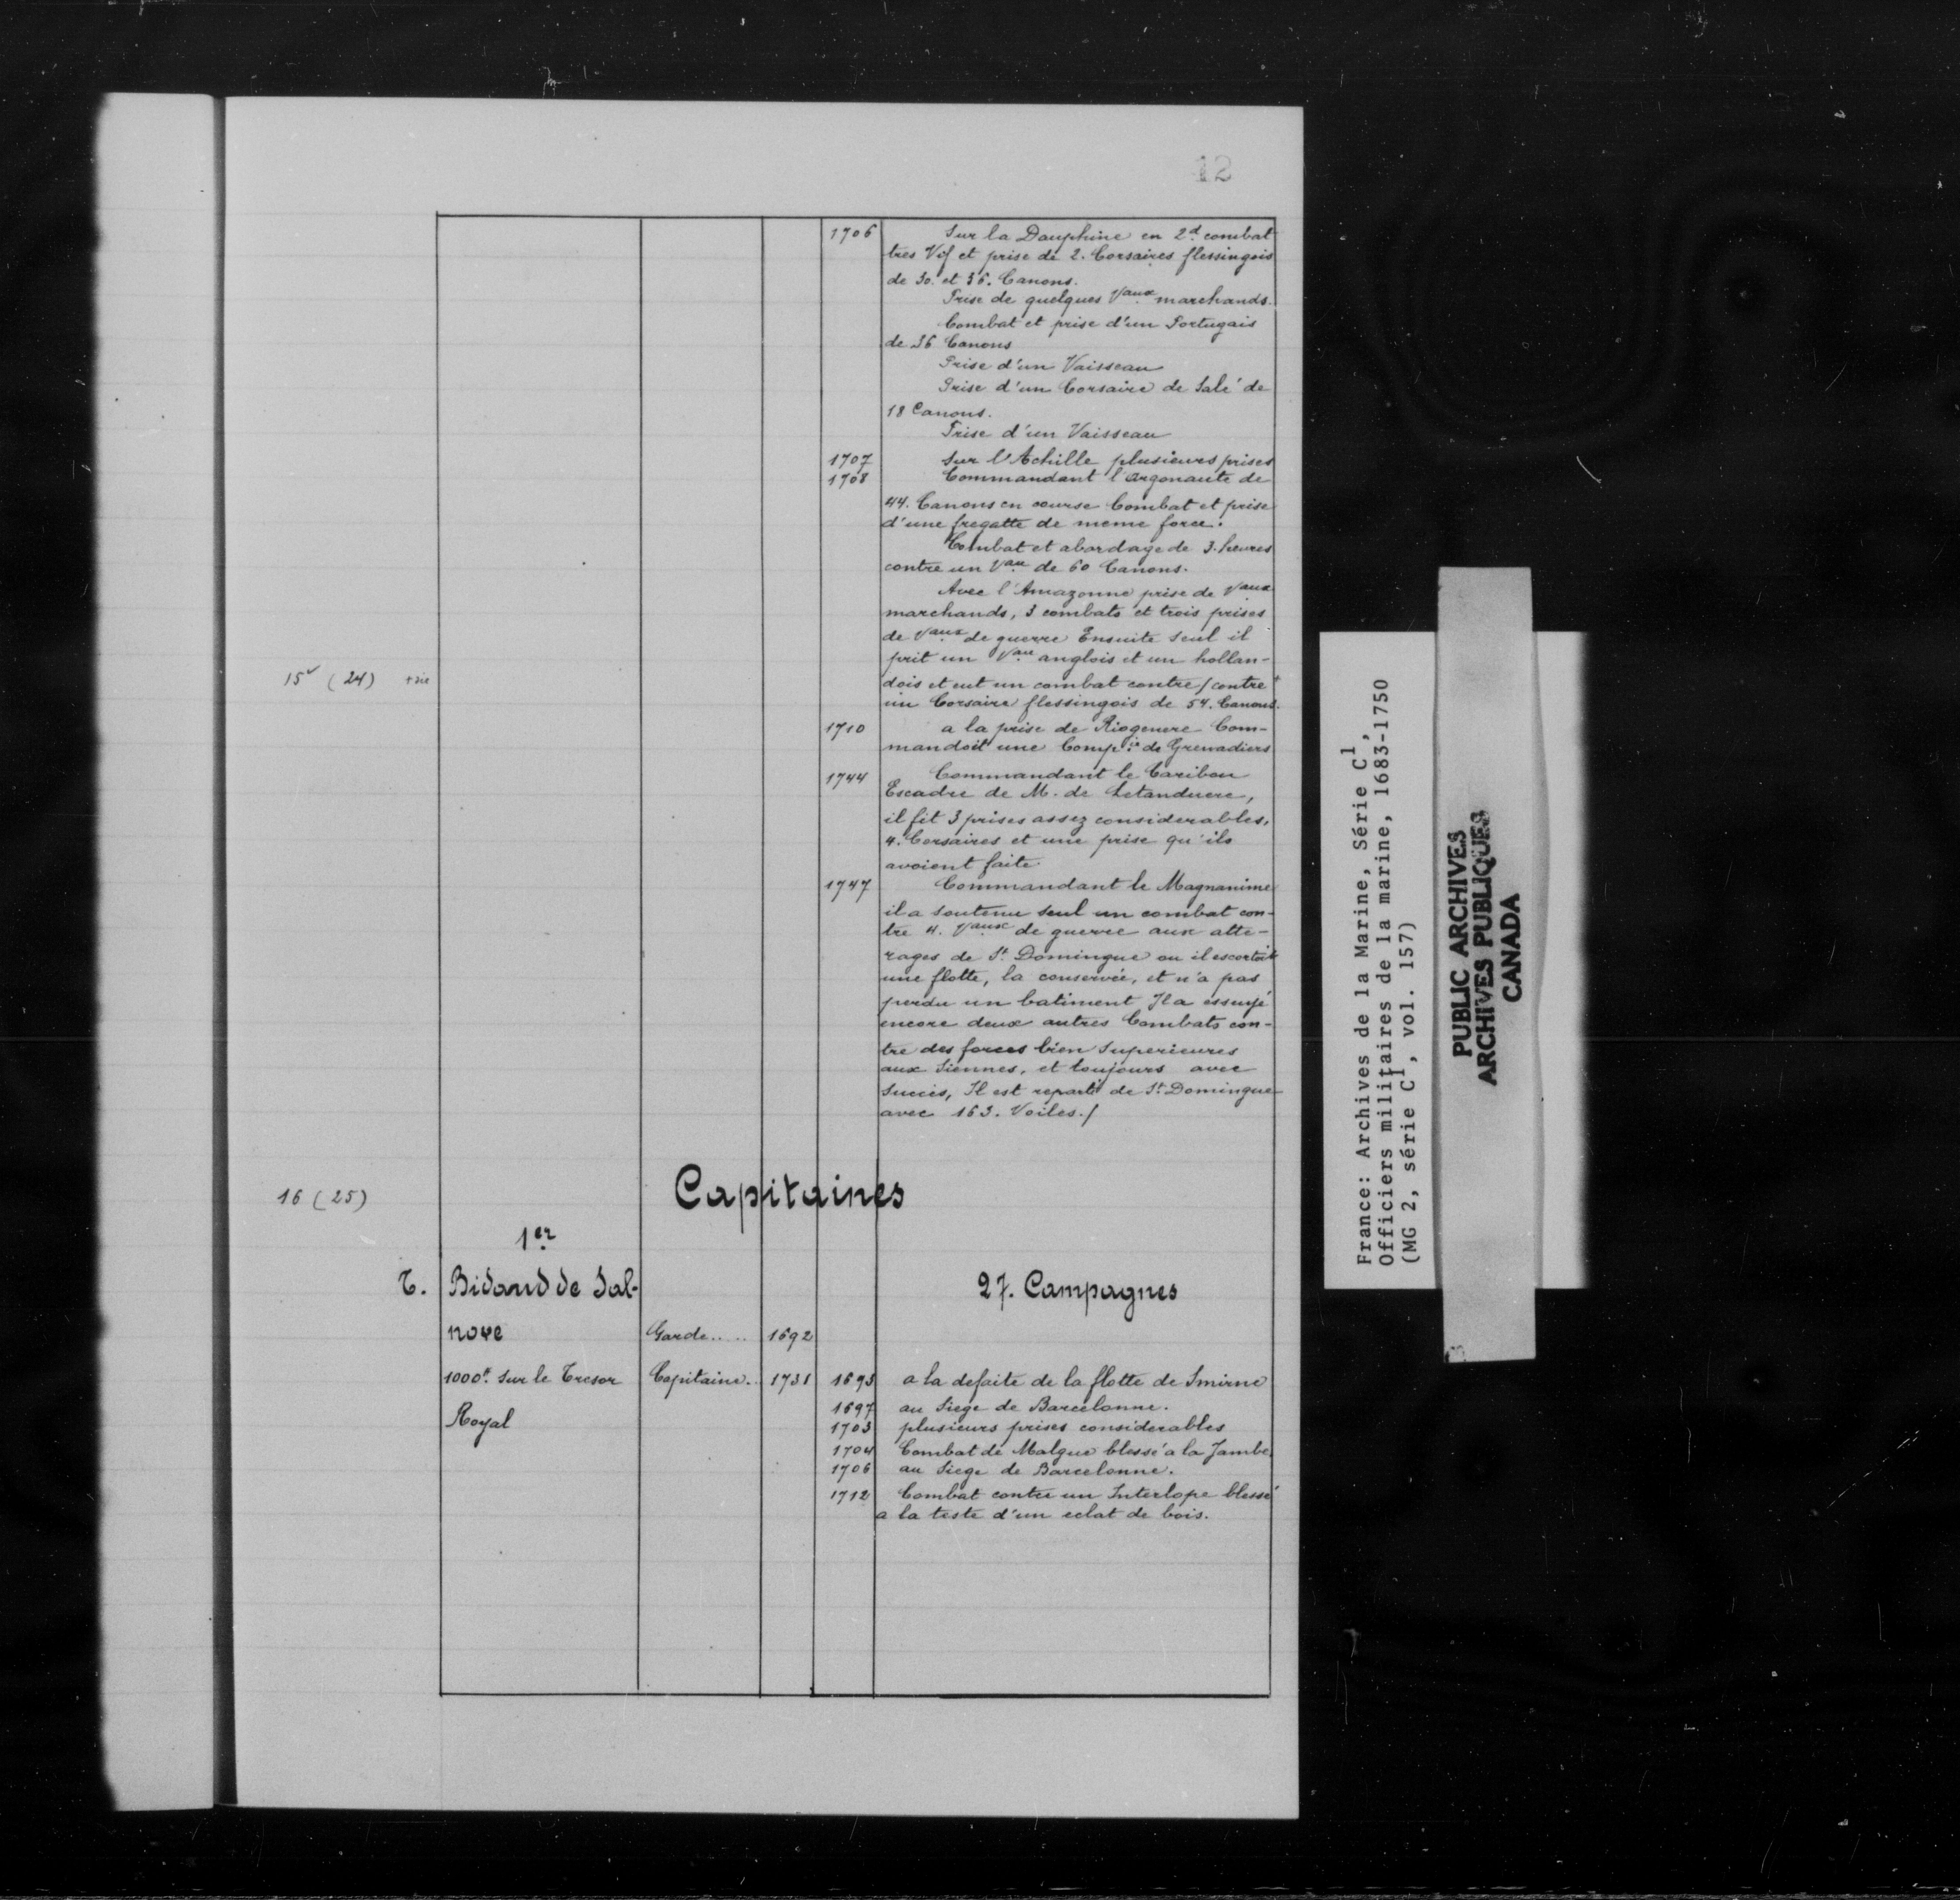 12
1706 Sur la Dauphine en 2d. combat
tres Vif et prise de 2. Corsaires flessingois
de 30. et 36. Canons.
Prise de quelques Vaux marchands.
Combat et prise d'un Portugais
de 36 Canons
Prise d'un Vaisseau
Prise d'un Corsaire de Salé de
18 Canons.
Prise d'un Vaisseau
1707 Sur l'Achille plusieurs prises
1708 Commandant l'Argonaute de
44. Canons en course Combat et prise
d'une fregatte de meme force.
Combat et abordage de 3. heures
contre un Vau de 60 Canons.
Avec l'Amazonne prise de Vaux
marchands, 3 combats et trois prises
de Vaux de guerre Ensuite Seul il
prit un Vau anglois et un hollan-
15v (24) + sic dois et eut un combat contre / contre +
un Corsaire flessingois de 54. Canons.
1710 a la prise de Riogenere Com-
mandoit une Compie de Grenadiers
1744 Commandant le Caribou
Escadre de M. de Letanduere,
il fit 3 prises assez considerables,
4. Corsaires et une prise qu'ils
avoient faite
1747 Commandant le Magnanime
il a soutenu seul un combat con-
tre 4. Vaux de guerre aux atte-
rages de St. Domingue ou il escortoit
une flotte, la conservée, et n'a pas
perdu un batiment Il a essuyé
encore deux autres Combats con-
tre des forces bien Superieures
aux Siennes, et toujours avec
Succès, Il est reparti de St. Domingue
avec 163. Voiles./
16 (25) Capitaines
1er
T. Bidaud de Sal- 27. Campagnes
nove Garde..... 1692
1000tt. Sur le Tresor Capitaine.. 1731 1693 a la defaite de la flotte de Smirne
Royal 1697 au Siege de Barcelonne.
1703 plusieurs prises considerables
1704 Combat de Malgue blessé a la Jambe.
1706 au Siege de Barcelonne.
1712 Combat contre un Interlope blessé
a la teste d'un eclat de bois.
France: Archives de la Marine, Série C1,
Officiers militaires de la marine, 1683-1750
(MG 2, série C1, vol. 157)
PUBLIC ARCHIVES
ARCHIVES PUBLIQUES
CANADA